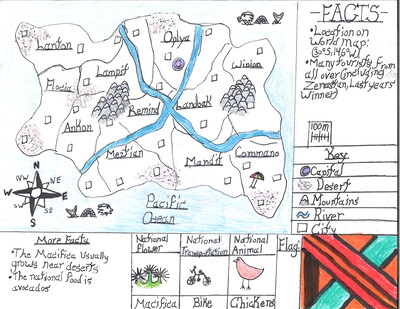 -FACTS-
•Location on
World Map:
•Many tourists from
all over (including
Zenastian, Last years
winner)
100m
Key
Capital
Desert
Mountains
River
City
Lanton
Opiva
Lampit
Winion
Mocia
Remind
Landoak
Ankon
Meztian
Mandit
Commano
N
NE
E
SE
S
SW
W
NW
Pacific
Ocean
More Facts
•The Macifica Usually
grows near deserts
•The national food is
avocados
National
Flower
Macifica
National
Transportation
Bike
National
Animal
Chickens
Flag